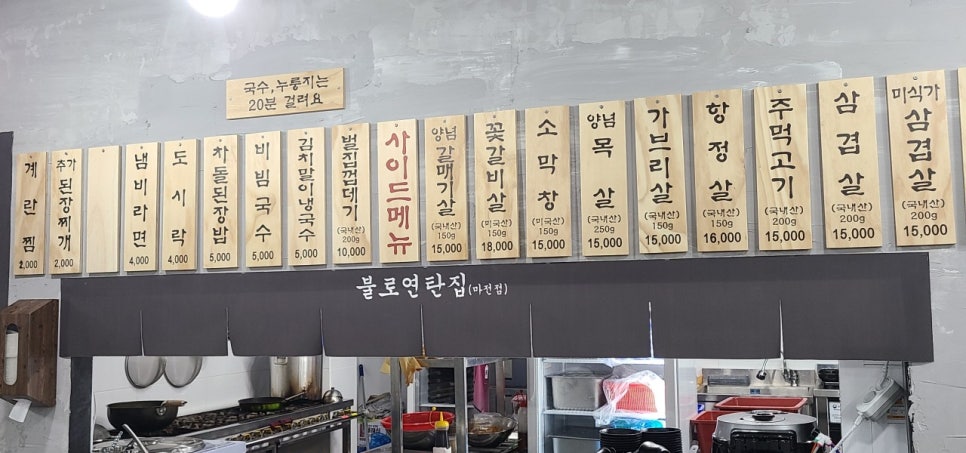 국수, 누룽지는
20분 걸려요
계란찜
2,000
추가
된장찌개
2,000
냄비라면
4,000
도시락
4,000
차돌된장밥
5,000
비빔국수
5,000
김치말이냉국수
5,000
벌집껍데기
(국내산)
200g
10,000
사이드메뉴
양념
갈매기살
(국내산)
150g
15,000
꽃갈비살
(미국산)
150g
18,000
소막창
(미국산)
150g
15,000
양념
목살
(국내산)
250g
15,000
가브리살
(국내산)
150g
15,000
항정살
(국내산)
150g
16,000
주먹고기
(국내산)
200g
15,000
삼겹살
(국내산)
200g
15,000
미식가
삼겹살
(국내산)
200g
15,000
불로연탄집(마전점)